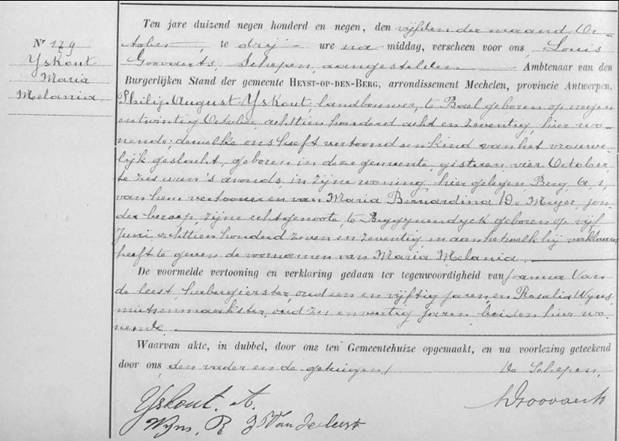 Nr 179
Yskout
Maria
Melania
Ten jare duizend negen honderd en negen, den vijfden der maand Oc-
tober, te drij ure na middag, verscheen voor ons, Louis
Goovaerts, Schepen, aangestelden Ambtenaar van den
Burgerlijken Stand der gemeente HEYST-OP-DEN-BERG, arrondissement Mechelen, provincie Antwerpen,
Philip August Yskout, landbouwer, te Boel geboren op negen
entwintig October achttien honderd acht en zeventig, hier wo-
nende; damelke ons heeft vertoond een kind van het vrouwe-
lijk geslacht, geboren in deze gemeente, gisteren vier October
te zes uren 's avonds, in zijne woning, hier gelegen Berg, 
van hem vertooner en van Maria Bernardina De Meyer, zon-
der beroep, zijne echtgenoote, te geboren op vijf
Juni achttien honderd zeven en zeventig, en aan hetwelk hij verklaard
heeft te geven de voornamen van Maria Melania.
De voormelde vertooning en verklaring gedaan ter tegenwoordigheid van Joanna Van
de leest, oud een en vijftig jaren en Rosalia Wyns,
mutsenmaakster, oud en twintig jaren, beiden hier wo-
nende.
Waarvan akte, in dubbel, door ons ten Gemeentehuize opgemaakt, en na voorlezing geteekend
door ons, den vader en de getuigen. De Schepen,
Yskout. A.
Wyns. R J Van de leest
LGoovaerts